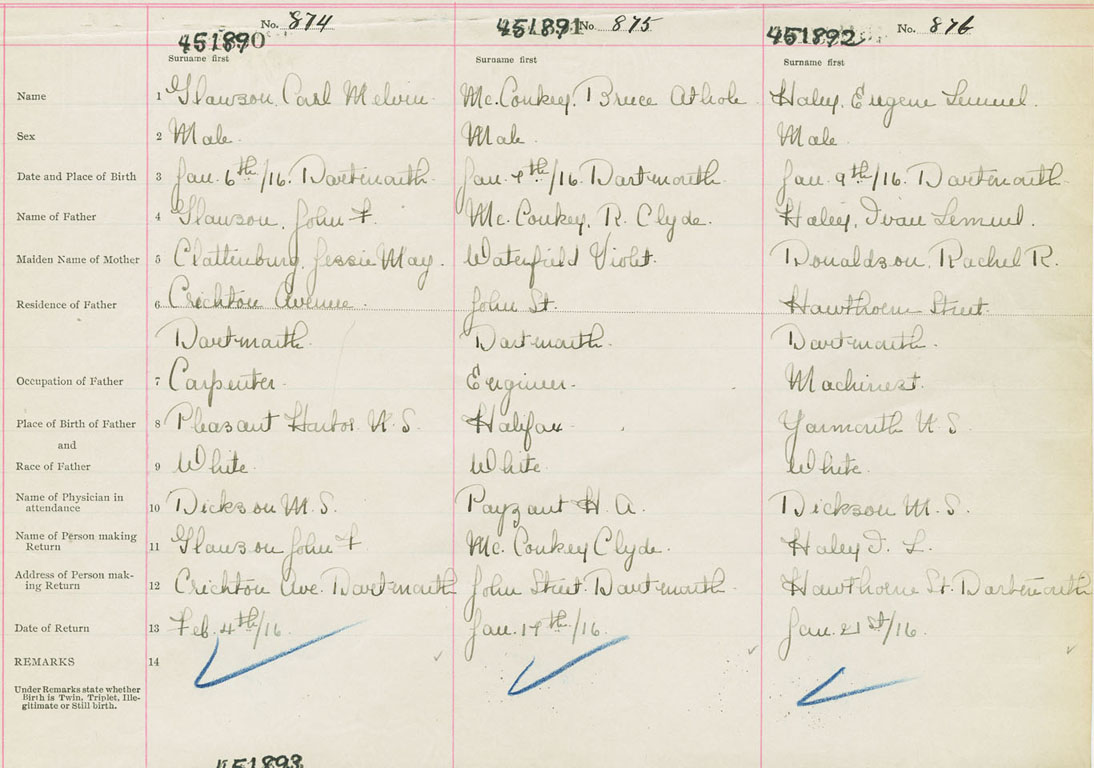 No. 874 451891 No. 875 No. 876
451890 451892
Surname first Surname first Surname first
Name 1 Glawson, Carl Melvin. Mc.Conkey, Bruce Athole Haley, Eugene Lemuel.
Sex 2 Male. Male. Male.
Date and Place of Birth 3 Jan. 6th/16. Dartmouth. Jan. 7th/16. Dartmouth. Jan. 9th/16. Dartmouth.
Name of Father 4 Glawson, John F. Mc.Conkey, R. Clyde. Haley, Ivan Lemuel.
Maiden Name of Mother 5 Clattenburg, Jessie May. Waterfield Violet. Donaldson, Rachel R.
Residence of Father 6 Crichton Avenue. John St. Hawthorne Street.
Dartmouth. Dartmouth. Dartmouth.
Occupation of Father 7 Carpenter. Engineer. Machinest.
Place of Birth of Father 8 Pleasant Harbor N.S. Halifax. Yarmouth N.S.
and
Race of Father 9 White. White. White.
Name of Physician in
attendance 10 Dickson M.S. Payzant H.A. Dickson M.S.
Name of Person making
Return 11 Glawson John F. Mc.Conkey Clyde. Haley I. L.
Address of Person mak-
ing Return 12 Crichton Ave. Dartmouth John Street Dartmouth. Hawthorne St. Dartmouth
Date of Return 13 Feb. 4th/16. Jan. 19th/16. Jan. 21st/16.
REMARKS 14
Under Remarks state whether
Birth is Twin, Triplet, Ille-
gitimate or Still birth.
451893